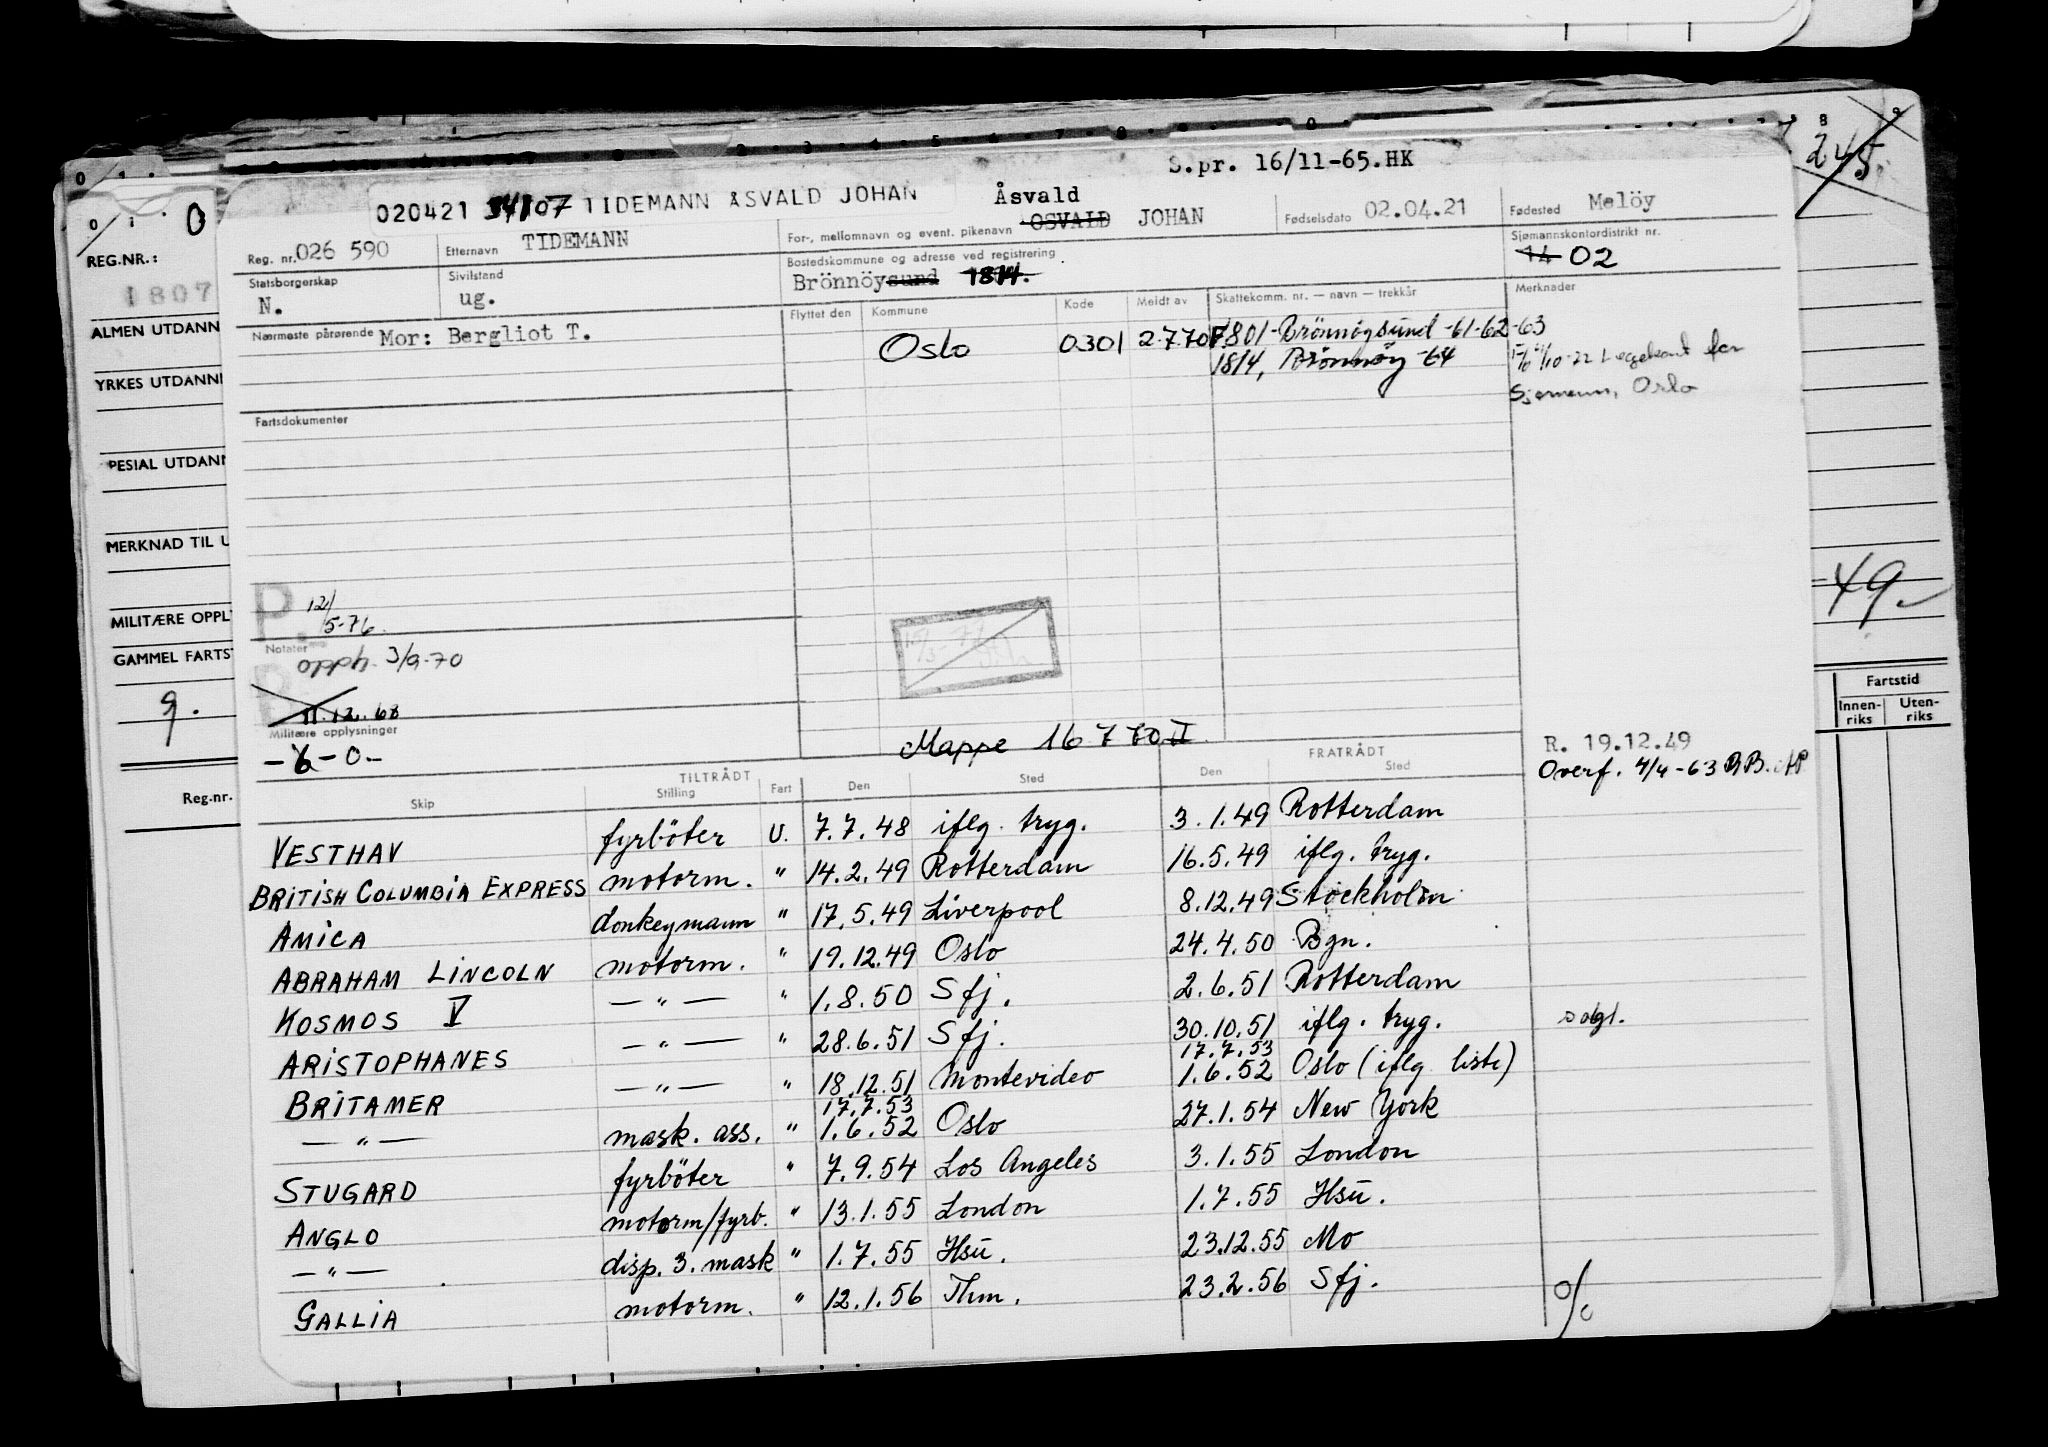 S.pr. 16/11-65.HK
245
020421 34107 TIDEMANN ÅSVALD JOHAN
Reg. nr. 026 590 Etternavn TIDEMANN For-, mellomnavn og event. pikenavn Åsvald OSVALD JOHAN Fødselsdato 02.04.21 Fødested Melöy
Statsborgerskap N. Sivilstand ug. Bostedskommune og adresse ved registrering Brönnöysund 1814. Sjømannskontordistrikt nr. 14 02
Nærmeste pårørende Mor: Bergliot T. Flyttet den Kommune Kode Meldt av Skattekomm. nr. — navn — trekkår Merknader
Oslo 0301 2.7.70 1801-Brönnöysund -61-62-63
1814, Brönnöy -64
Sjømenn, Oslo
Fartsdokumenter
P. 12/5-76.
Notater
3/9-70
11.12.68
Militære opplysninger
-6-0.-
Mappe 16 770 II
R. 19.12.49
Overf. 4/4-63
TILTRÅDT FRATRÅDT
Skip Stilling Fart Den Sted Den Sted
VESTHAV fyrböter U. 7.7.48 iflg. tryg. 3.1.49 Rotterdam
BRITISH COLUMBIA EXPRESS motorm. " 14.2.49 Rotterdam 16.5.49 iflg. tryg.
AMICA donkeymann " 17.5.49 Liverpool 8.12.49 Stockholm
ABRAHAM LINCOLN motorm. " 19.12.49 Oslo 24.4.50 Bgn.
KOSMOS V — " — " 1.8.50 Sfj. 2.6.51 Rotterdam
ARISTOPHANES — " — " 28.6.51 Sfj. 30.10.51 iflg. tryg.
BRITAMER — " — " 18.12.51 Montevideo 17.7.53 1.6.52 Oslo (iflg liste)
— " — mask. ass. " 17.7.53 1.6.52 Oslo 27.1.54 New York
STUGARD fyrböter " 7.9.54 Los Angeles 3.1.55 London
ANGLO motorm/fyrb. " 13.1.55 London 1.7.55 Hsu.
— " — disp. 3. mask " 1.7.55 Hsu. 23.12.55 Mo
GALLIA motorm. " 12.1.56 Thm. 23.2.56 Sfj.
%
REG.NR.:
1807
ALMEN UTDANN
YRKES UTDANN
PESIAL UTDANN
MERKNAD TIL U
MILITÆRE OPPL
GAMMEL FARTST
9.
Reg.nr.
49.-
Fartstid
Innen-riks Uten-riks